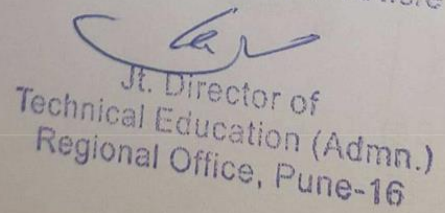 Jt. Director of
Technical Education (Admn.)
Regional Office, Pune-16